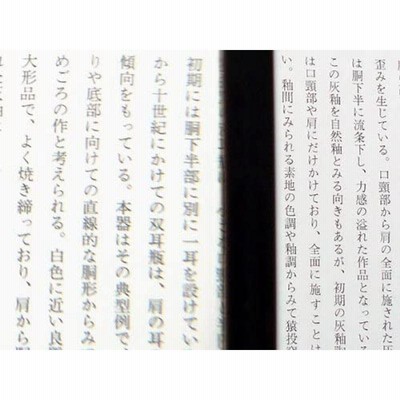 歪みを生じている。口頸部から肩の全面に施された灰
は胴下半に流条下し、力感の溢れた作品となっている
この灰釉を自然釉とみる向きもあるが、初期の灰釉陶
は口頸部や肩にだけかけており、全面に施すことは
い。釉間にみられる素地の色調や釉調からみて猿投窯
初期には胴下半部に別に一耳を設けてい
から十世紀にかけての双耳瓶は、肩の耳
傾向をもっている。本器はその典型例で
りや底部に向けての直線的な胴形からみ
めごろの作と考えられる。白色に近い良
大形品で、よく焼き締っており、肩から